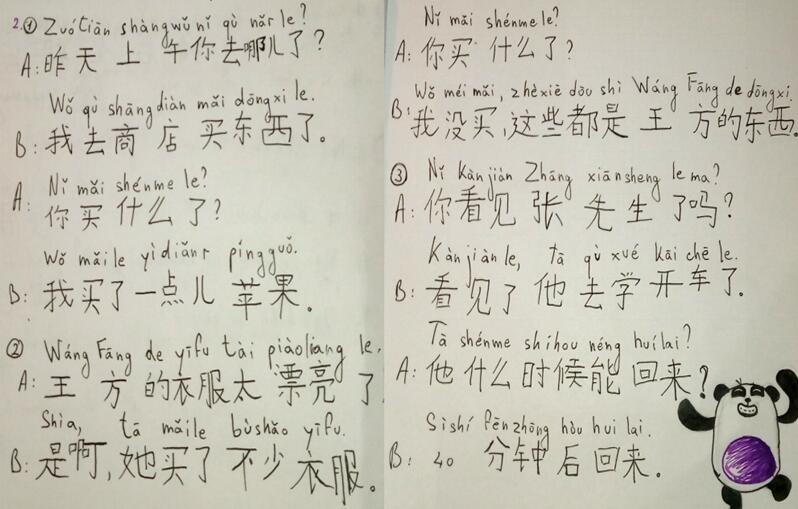 2.① Zuótiān shàngwǔ nǐ qù nǎr le?
A: 昨天上午你去哪儿了?
Wǒ qù shāngdiàn mǎi dōngxi le.
B: 我去商店买东西了。
Nǐ mǎi shénme le?
A: 你买什么了?
Wǒ mǎile yìdiǎnr píngguǒ.
B: 我买了一点儿苹果。
② Wáng Fāng de yīfu tài piàoliang le.
A: 王方的衣服太漂亮了
Shìa, tā mǎile bùshǎo yīfu.
B: 是啊,她买了不少衣服。
Nǐ mǎi shénme le?
A: 你买什么了?
Wǒ méi mǎi, zhèxiē dōu shì Wáng Fāng de dōngxi.
B: 我没买,这些都是王方的东西.
③ Nǐ kànjiàn Zhāng xiānsheng le ma?
A: 你看见张先生了吗?
Kànjiàn le, tā qù xué kāi chē le.
B: 看见了他去学开车了.
Tā shénme shíhou néng huílai?
A: 他什么时候能回来?
Sìshí fēnzhōng hòu huí lai.
B: 40 分钟后回来。